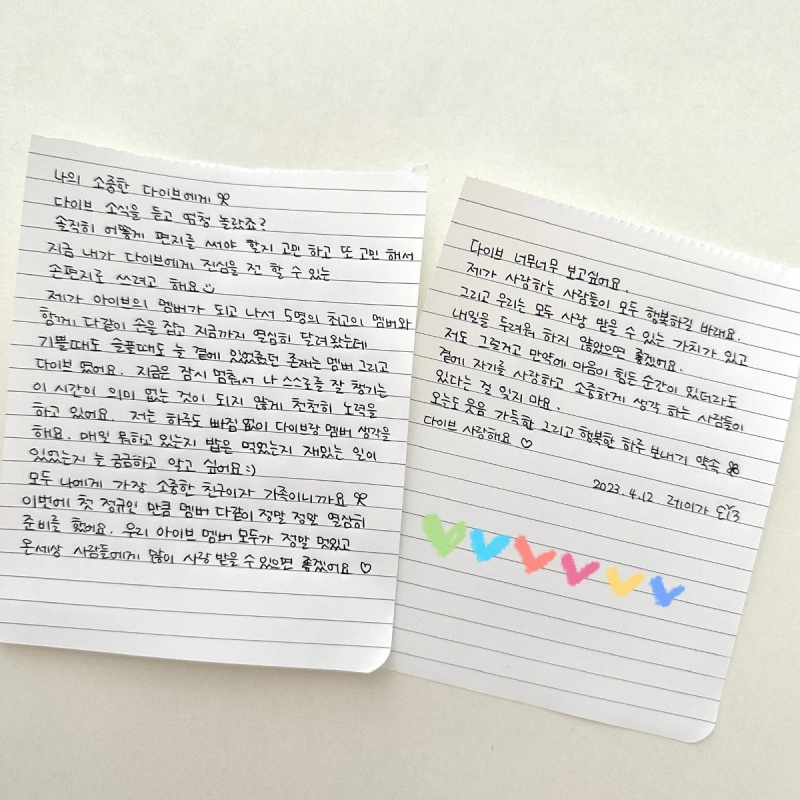 나의 소중한 다이브에게
다이브 소식을 듣고 엄청 놀랐죠?
솔직히 어떻게 편지를 써야 할지 고민 하고 또 고민 해서
지금 내가 다이브에게 진심을 전 할 수 있는
손편지로 쓰려고 해요
제가 아이브의 멤버가 되고 나서 5명의 최고의 멤버와
함께 다같이 손을 잡고 지금까지 열심히 달려왔는데
기쁠때도 슬플때도 늘 곁에 있어줬던 존재는 멤버 그리고
다이브 였어요. 지금은 잠시 멈춰서 나 스스로를 잘 챙기는
이 시간이 의미 없는 것이 되지 않게 천천히 노력을
하고 있어요. 저는 하루도 빠짐 없이 다이브랑 멤버 생각을
해요. 매일 뭐하고 있는지 밥은 먹었는지 재밌는 일이
있었는지 늘 궁금하고 알고 싶어요:)
모두 나에게 가장 소중한 친구이자 가족이니까요
이번에 첫 정규인 만큼 멤버 다같이 정말 정말 열심히
준비를 했어요. 우리 아이브 멤버 모두가 정말 멋있고
온세상 사람들에게 많이 사랑 받을 수 있으면 좋겠어요 ♡
다이브 너무너무 보고싶어요.
제가 사랑하는 사람들이 모두 행복하길 바래요.
그리고 우리는 모두 사랑 받을 수 있는 가치가 있고
내일을 두려워 하지 않았으면 좋겠어요.
저도 그럴거고 만약에 마음이 힘든 순간이 있더라도
곁에 자기를 사랑하고 소중하게 생각 하는 사람들이
있다는 걸 잊지 마요.
오늘도 웃음 가득한 그리고 행복한 하루 보내기 약속
다이브 사랑해요 ♡
2023.4.12 레이가